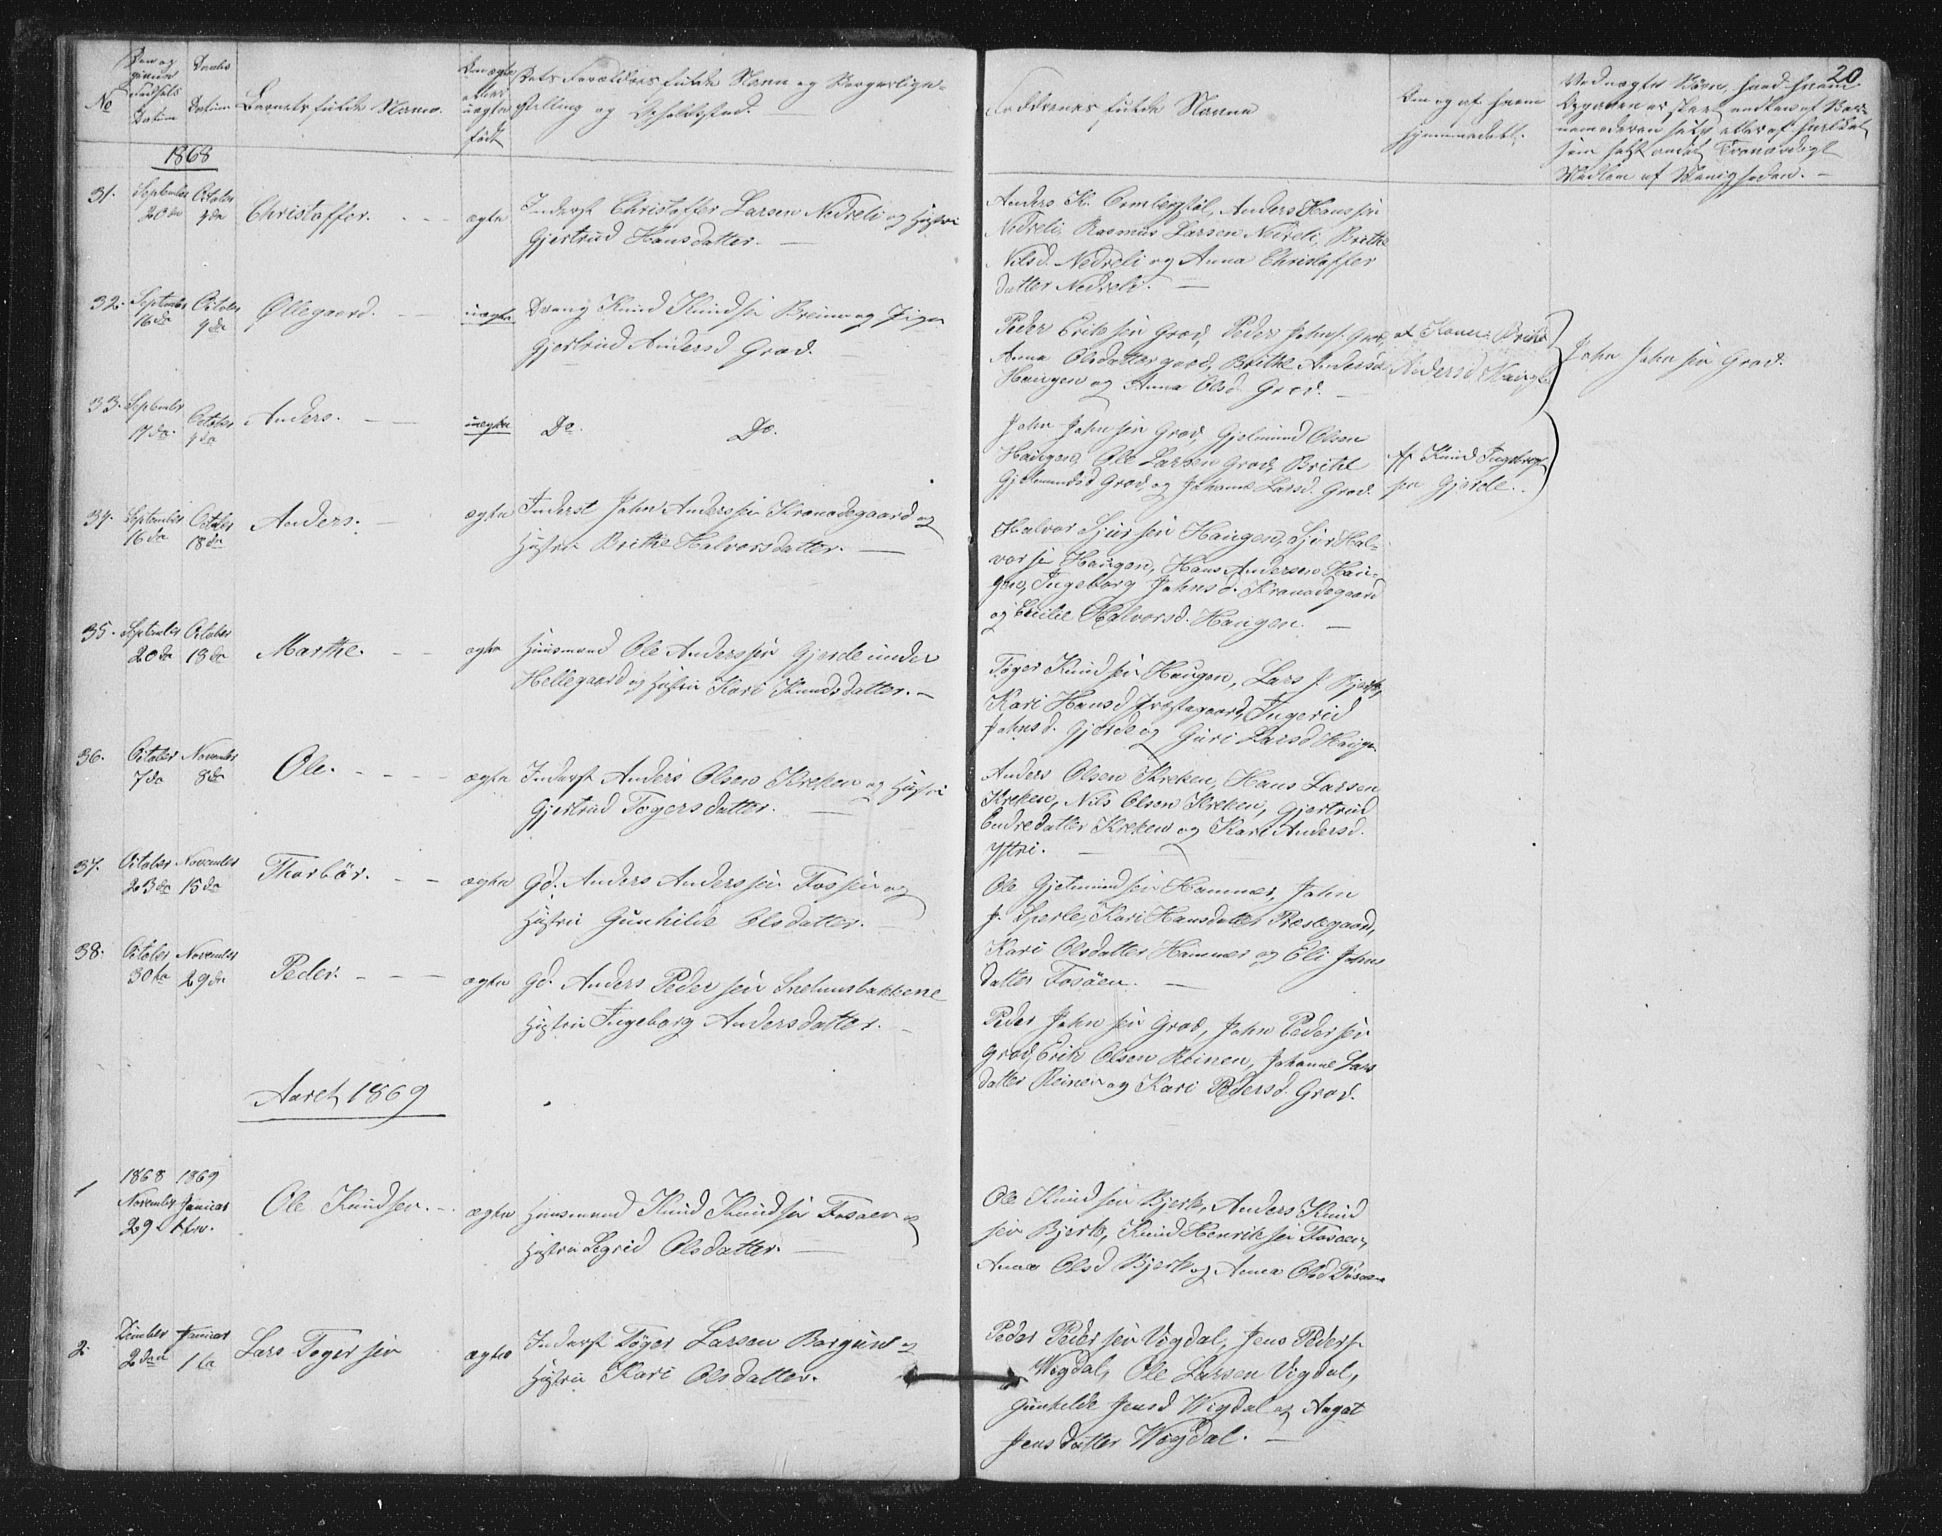 20
No
Datum
Datum
Barnets fulde Navn.
Forældres fulde Navn og Borgerlige
Stilling og Opholdssted.
Faddernes fulde Navne
hjemmedøbt.
1868
31.
September
20de
October
4de
Christoffer.
ægte
Inderst Christoffer Larsen Nedreli og Hustru
Gjertrud Hansdatter.
Anders K. Anders Hanssen
Nedreli, Rasmus Larsen Nedreli, Brithe
Nilsd. Nedreli og Anna Christoffer
datter Nedreli.
32.
September
16de
October
4de
Øllegaard.
uægte
Dreng Knud Knudsen og Pige
Gjertrud Andersd Grov.
Peder Eriksen Grov, Peder Johns. Grov,
Anna Olsdatter Grov, Brithe Andersd
Haugen og Anna Olsd. Grov.
af Konen Brithe
Andersd Haugen
John Johnsen Grov.
33.
September
17de
October
4de
Anders.
uægte
Do. Do.
John Johnsen Grov, Gjelmund Olsen
Haugen, Ole Larsen Grov, Brithe
Gjelmundsd Grov og Johanne Larsd. Grov.
Af Knud Ingebrigt
sen Gjerde.
34.
September
16de
October
18de
Anders.
ægte
Inderst John Anderssen Kronodegaard og
Hustru Brithe Halvorsdatter.
Halvor Sjursen Haugen, Sjur Hal-
vorsen Haugen, Hans Andersen Hau-
gen, Ingeborg Johnsd. Kronodegaard
og Cecilie Halvorsd. Haugen.
35.
September
20de
October
18de
Marthe.
ægte
Huusmand Ole Anderssen Gjerde under
Hellegaard og Hustru Kari Knudsdatter.
Tøger Knudsen Haugen, Lars J. Bjerk,
Kari Hansd Præstegaard, Ingerid
Johnsd. Gjerde og Guri Larsd Haugen
36.
October
7de
November
8de
Ole.
ægte
Inderst Anders Olsen Kreken og Hustru
Gjertrud Togersdatter.
Anders Olsen Kreken, Hans Larsen
Kreken, Nils Olsen Kreken, Gjertrud
Endredatter Kreken og Kari Andersd.
Ytteri.
37.
October
23de
November
15de
Thorbør.
ægte
Gd. Anders Anderssen Fossen og
Hustru Gunhilde Olsdatter.
Ole Gjelmundsen Hammer, John
J. Sperle, Kari Hansdatter Præstegaard,
Kari Olsdatter Hammer og Eli Johns
datter Fosøen.
38.
October
30te
November
29de
Peder.
ægte
Gd. Anders Pedersen
Hustru Ingeborg Andersdatter.
Peder Johnsen Grov, John Pedersen
Grov, Erik Olsen Reinen, Johanne Lars
datter Reinen og Kari Pedersd. Grov.
Aaret 1869
1
1868
November
29
1869
Januar
1ste.
Ole Knudsen.
ægte
Huusmand Knud Knudsen Fosøen og
Hustru Segrid Olsdatter.
Ole Knudsen Bjerk, Anders Knud
sen Bjerk, Knud Henriksen Fosøen,
Anna Olsd Bjerk og Anna Olsd Fosøen
2.
2den
Januar
1te
Lars Togersen
ægte
Inderst Tøger Larsen Borgund og
Hustru Kari Olsdatter.
Peder Pedersen Vigdal, Jens Peders.
Wigdal, Ole Larsen Vigdal,
Gunhilde Jensd Wigdal og Aagot
Jensdatter Wigdal.